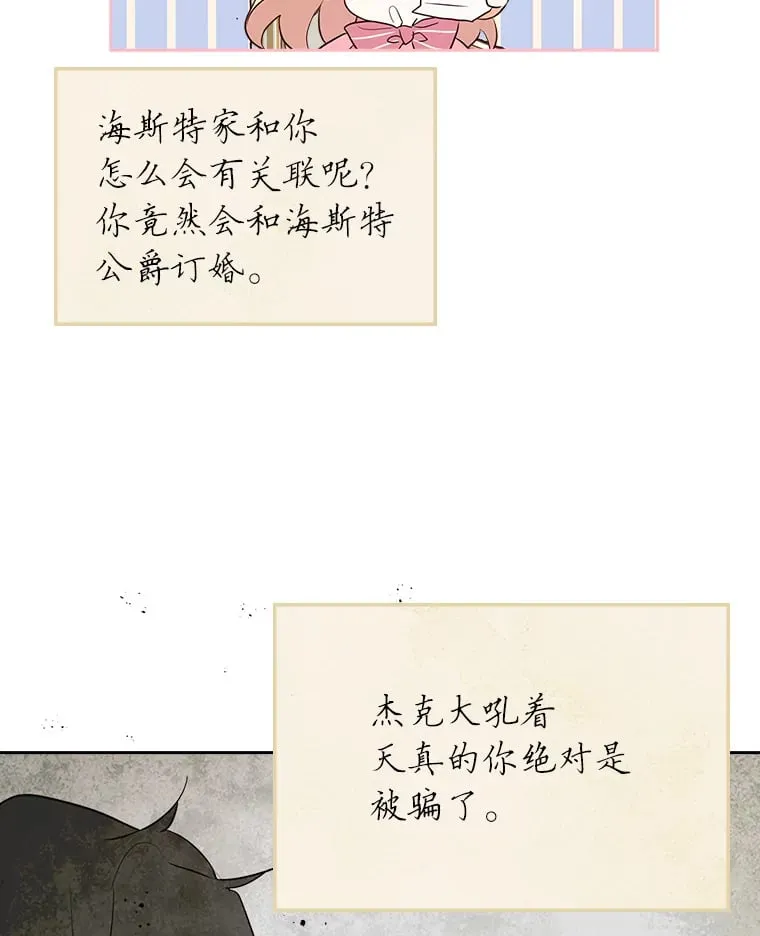 海斯特家和你
怎么会有关联呢？
你竟然会和海斯特
公爵订婚。
杰克大吼着
天真的你绝对是
被骗了。